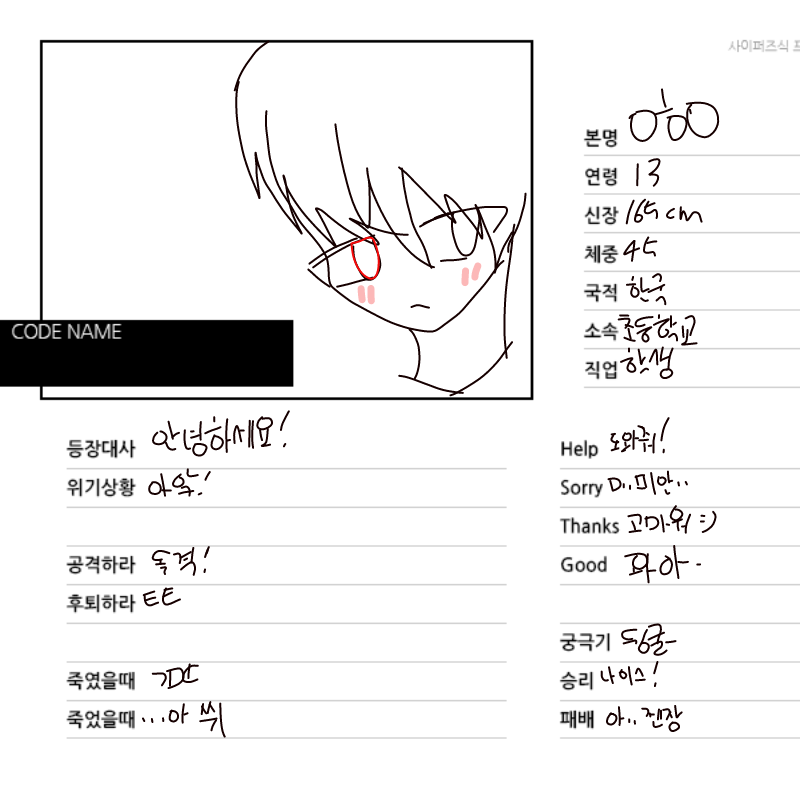 사이퍼즈식 프
본명
연령 13
신장 165cm
체중 45
국적 한국
소속 초등학교
직업 학생
CODE NAME
등장대사 안녕하세요!
위기상황 아앜!
공격하라 돌격!
후퇴하라 ㅌㅌ
죽였을때
죽었을때 ...아 쒸
Help 도와줘!
Sorry ㅁ..미안..
Thanks 고마워 :)
Good 좌아-
궁극기 딩굴-
승리 나이스!
패배 아.. 젠장